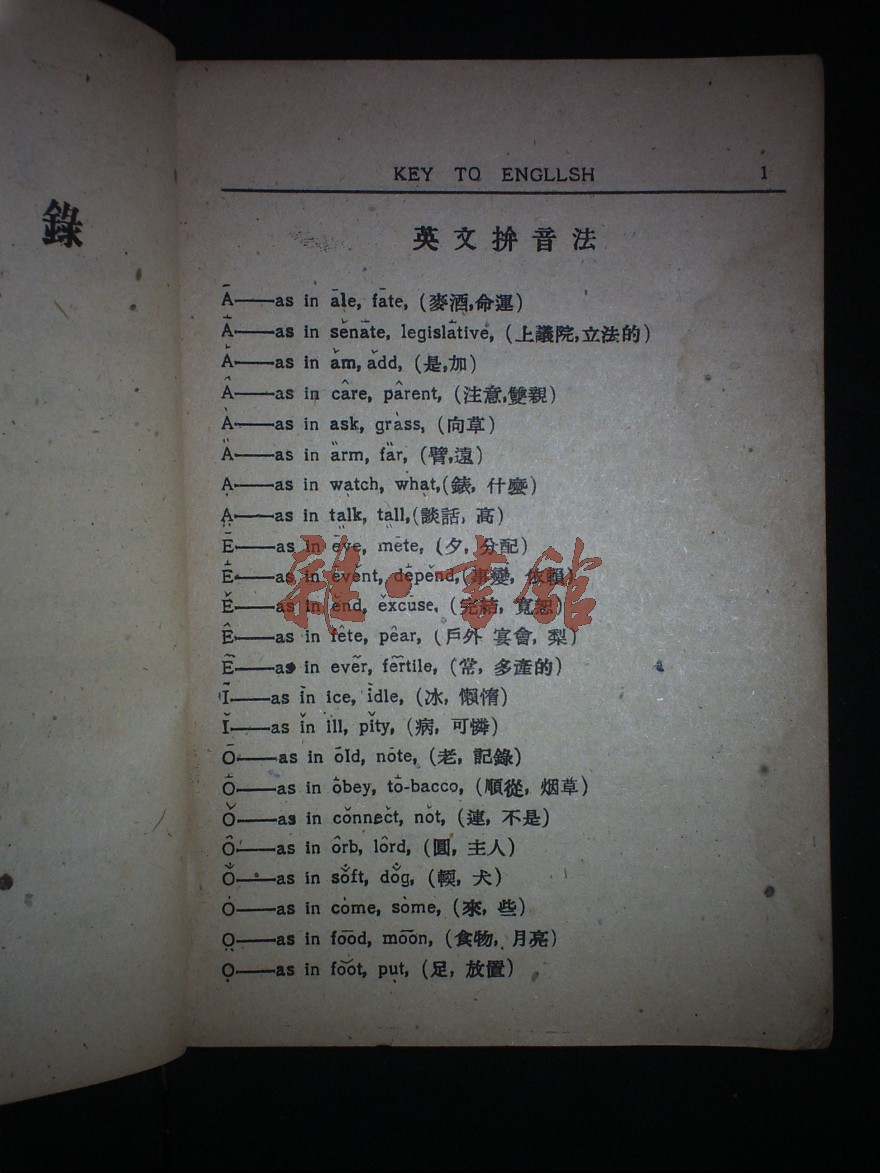 錄
KEY TO ENGLLSH 1
英文拚音法
Ā——as in āle, fāte, (麥酒,命運)
Ȧ——as in sĕnāte, legislātive, (上議院,立法的)
Ă——as in ăm, ădd, (是,加)
Â——as in câre, pârent, (注意,雙親)
Ȧ——as in ask, gràss, (向草)
Ä——as in ärm, fär, (臂,遠)
Ạ——as in wạtch, whạt,(錶, 什麼)
A̤——as in talk, tall,(談話, 高)
Ē——as in eve, mēte, (夕, 分配)
Ė——as in event, dėpĕnd,(事變, 依賴)
Ĕ——as in ĕnd, ĕxcuse, (完結, 寬恕)
Ê——as in fête, pêar, (戶外 宴會, 梨)
Ẽ——as in evẽr, fẽrtile, (常, 多產的)
Ī——as in ice, idle, (冰, 懶惰)
Ĭ——as in ill, pĭty, (病, 可憐)
Ō——as in ōld, nōte, (老, 記錄)
Ȯ——as in ôbey, tô-bacco, (順從, 烟草)
Ŏ——as in cŏnnect, nŏt, (連, 不是)
Ô——as in ôrb, lôrd, (圓, 主人)
Ŏ——as in sŏft, dŏg, (輭, 犬)
Ȯ——as in còme, sòme, (來, 些)
O̤——as in fōōd, mōōn, (食物, 月亮)
Ọ——as in fŏŏt, pụt, (足, 放置)
雜·書館